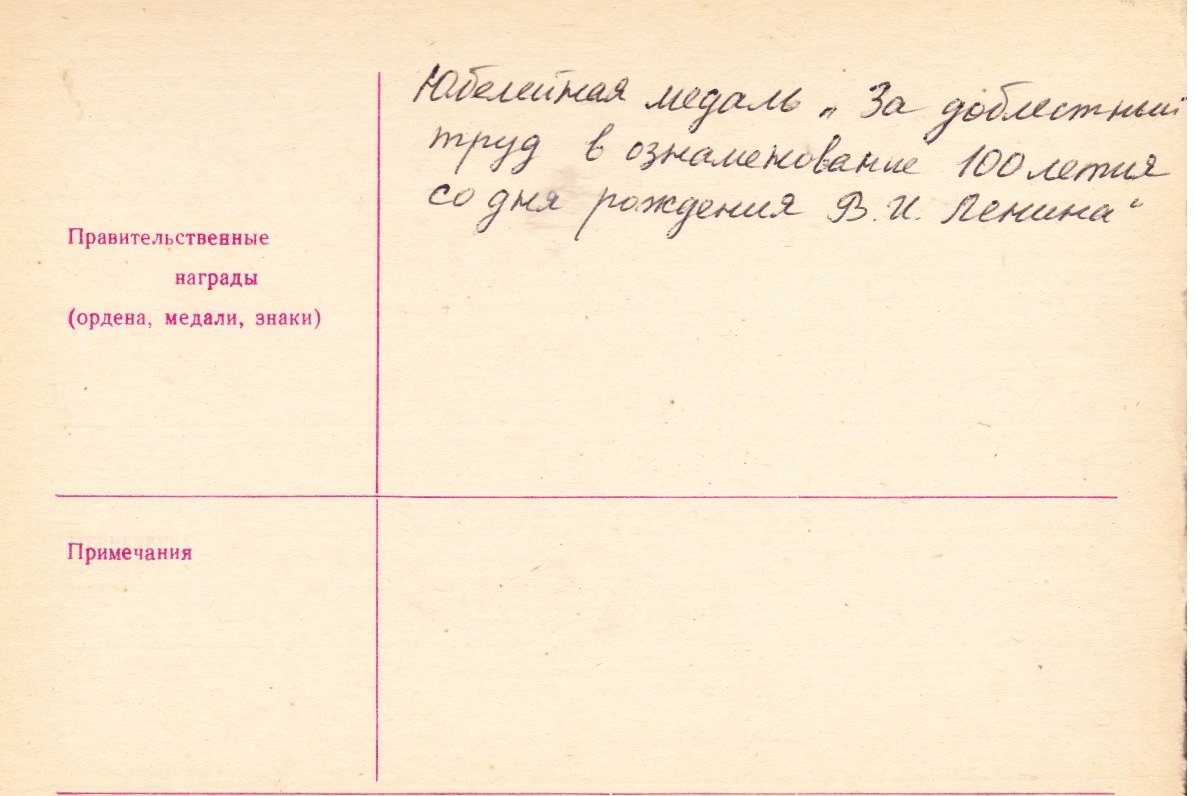 Юбилейная медаль „За доблестный
труд в ознаменование 100летия
со дня рождения В.И. Ленина“
Правительственные
награды
(ордена, медали, знаки)
Примечания